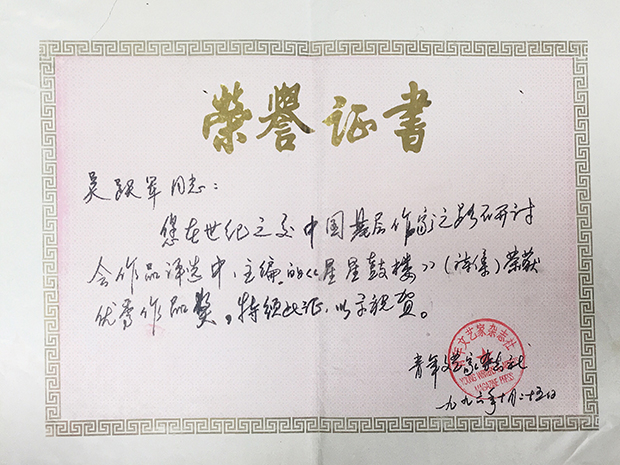 榮譽证书
吴跃军同志：
您在世纪之交中国基层作家之路研讨
会作品评选中，主编的《星星鼓楼》（诗集）荣获
优秀作品奖。特颁此证，以示祝贺。
青年文艺家杂志社
YOUNG WRITERS
MAGAZINE PRESS
青年文艺家杂志社
一九九六年十月二十五日